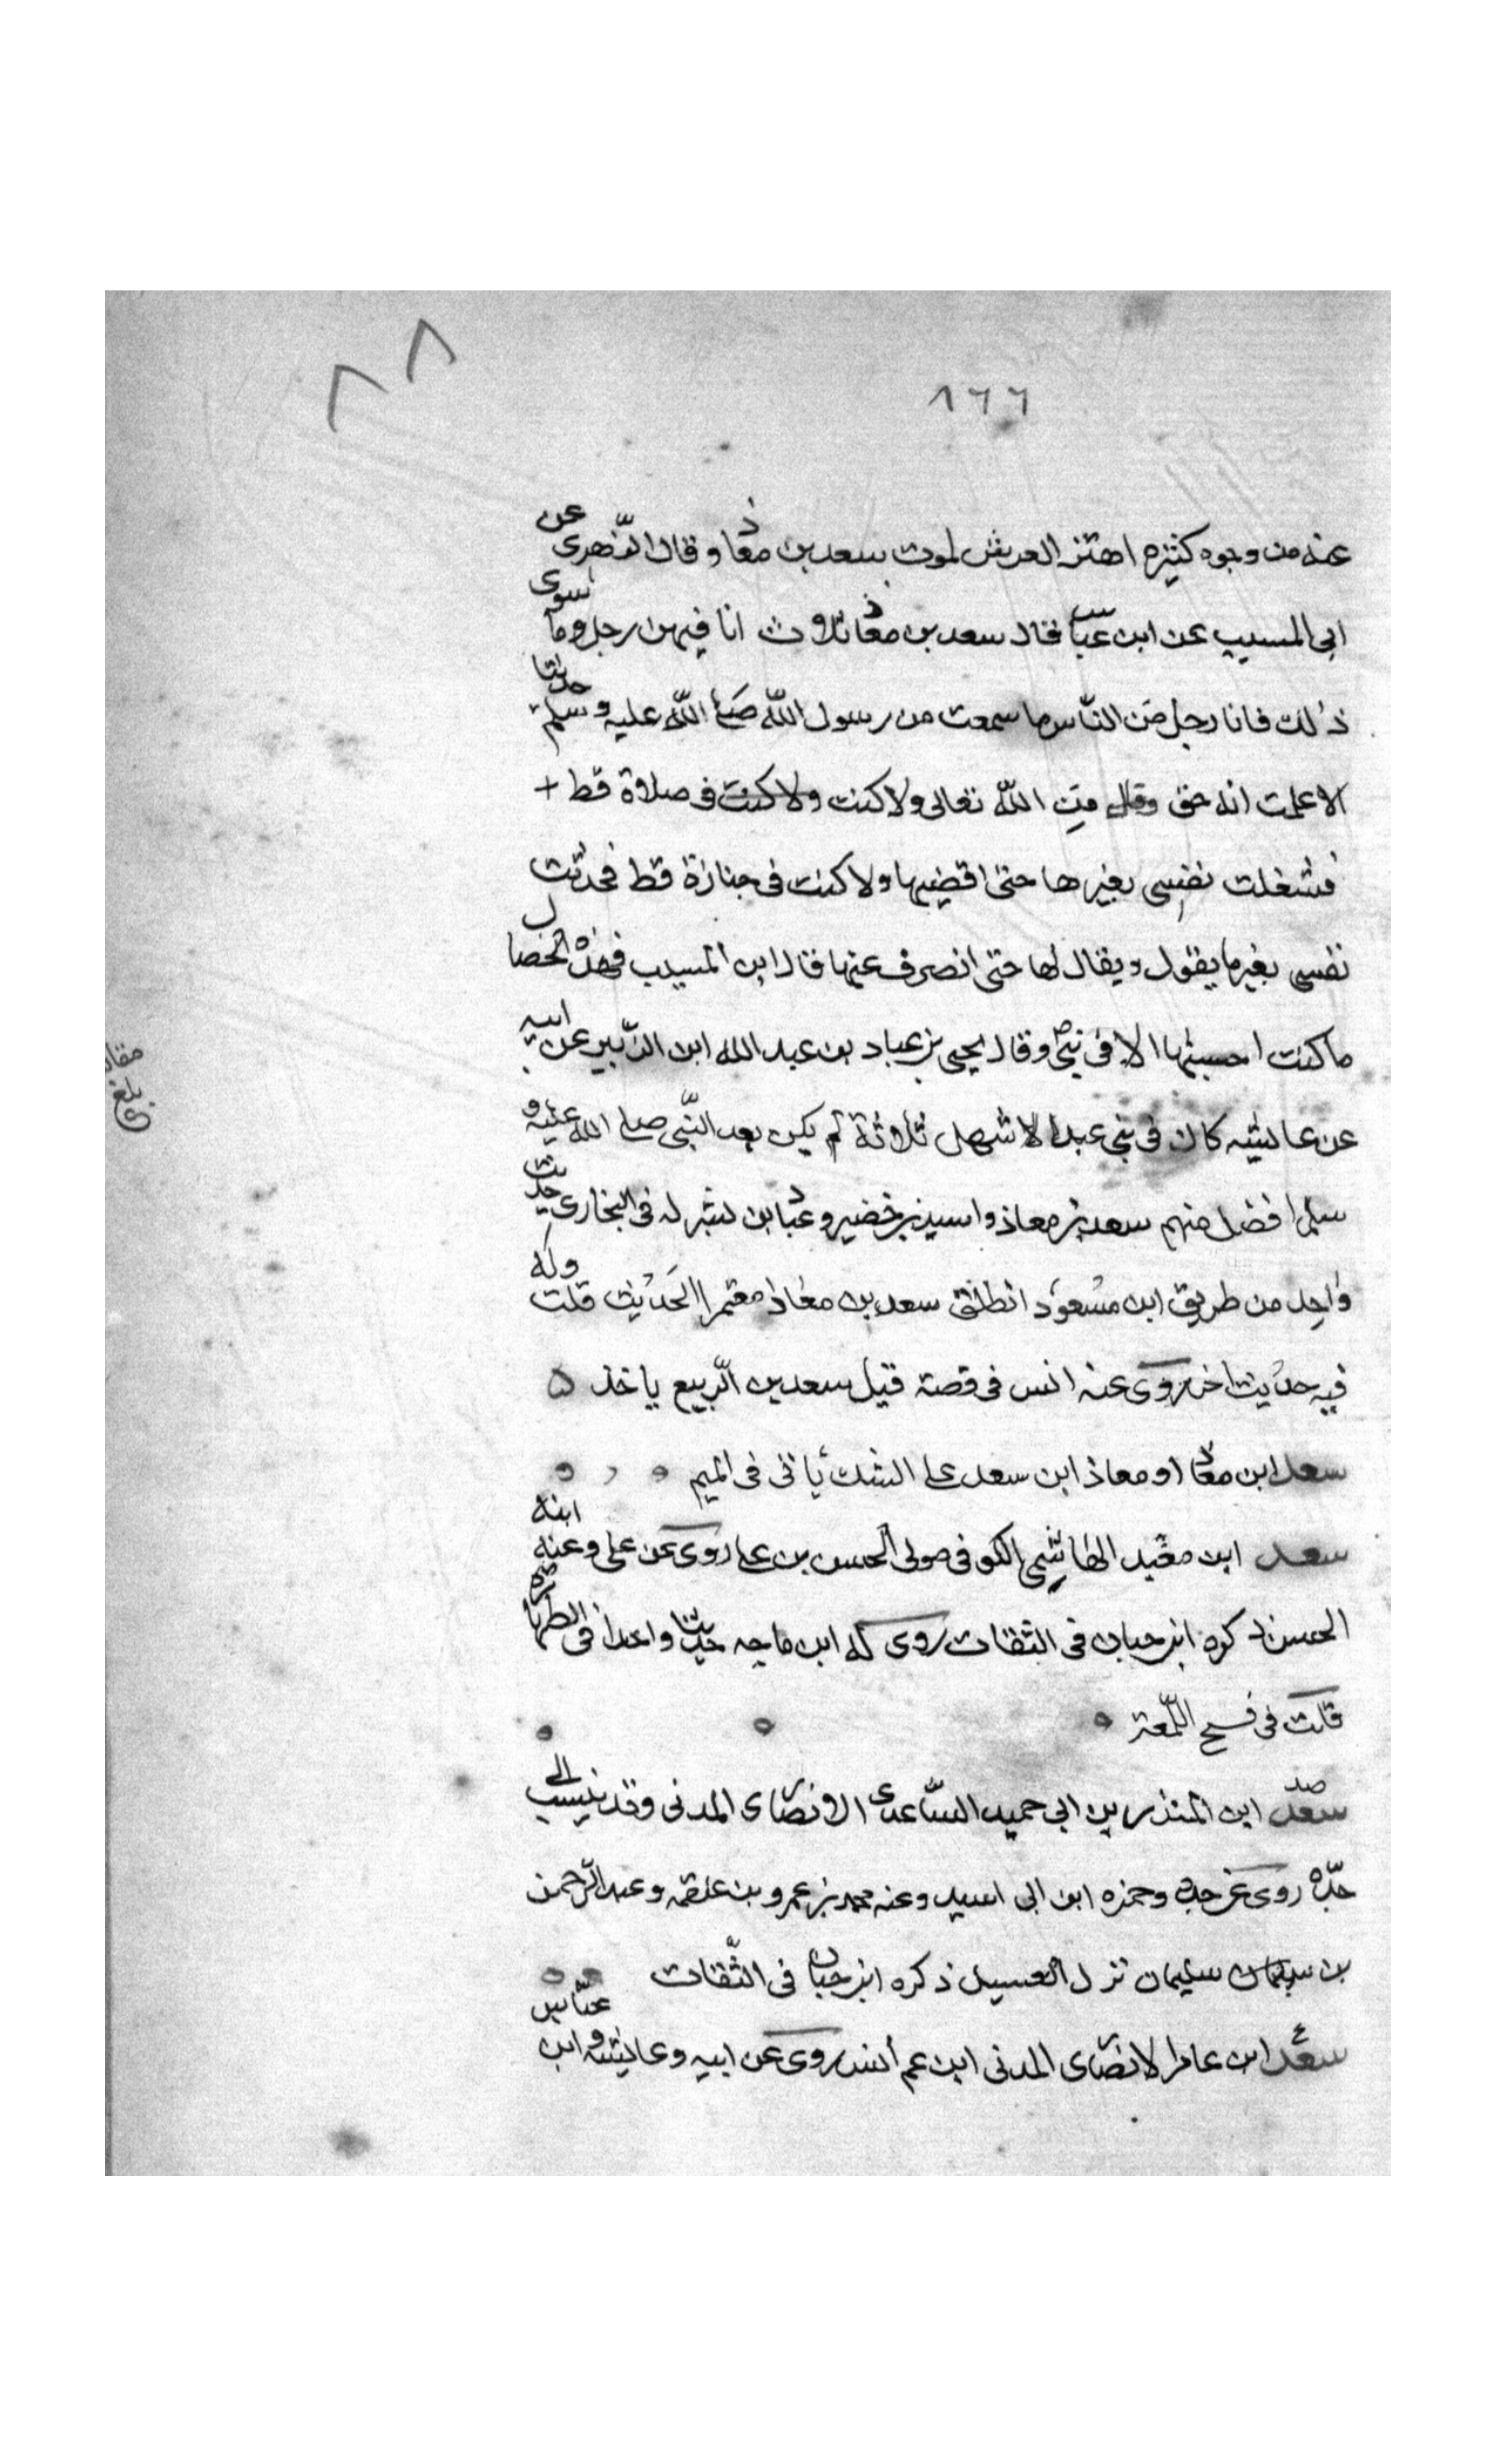 ٨٨
٨٦٦
عنه من وجوه كثيره اهتز العرش لموت سعد بن معاذ وقال الزهرى عن
ابى المسيب عن ابن عباس قال سعد بن معاذ ثلاث انا فيهن رجل وما سوى
ذلك فانا رجل من الناس ما سمعت من رسول الله صلى الله عليه وسلم حديثا
الا علمت انه حق وقال من الله تعالى ولا كنت ولا كنت فى صلاة قط +
فشغلت نفسى بغيرها حتى اقضيها ولا كنت فى جنازة قط فحدثت
نفسى بغير ما يقول ويقال لها حتى انصرف عنها قال ابن المسيب فهذه الخصال
ما كنت احسبها الا فى نبى وقال يحيى بن عباد بن عبد الله ابن الزبير عن ابيه
عن عايشه كان فى بنى عبد الاشهل ثلاثة لم يكن بعد النبى صلى الله عليه و
سلم افضل منهم سعد بن معاذ واسيد بن خضير وعباد بن بشر له فى البخارى حديث
واحد من طريق ابن مسعود انطلق سعد بن معاذ معتمرا الحديث قلت وله
فيه حديث اخر روى عنه انس فى قصة قتيل سعد بن الربيع ياخذ ٥
سعد ابن معاذ او معاذ ابن سعد على الشك ياتى فى الميم
سعد ابن معبد الهاشمى الكوفى مولى الحسن بن على روى عن على وعنه ابنه
الحسن ذكره ابن حبان فى الثقات روى له ابن ماجه حديثا واحدا فى الطهارة
قلت فى نسخ اللمعتر
سعد ابن المنذر بن ابى حميد الساعدى الانصارى المدنى وقد ينسب الى
جده روى عن جده وحمزه ابن ابى اسيد وعنه محمد بن عمرو بن علقمه وعبد الرحمن
بن سليمان سليمان نزل العسيل ذكره ابن حبان فى الثقات
سعد ابن عامر الانصارى المدنى ابن عم أنس روى عن ابيه وعايشه وابن عباس
بلغ